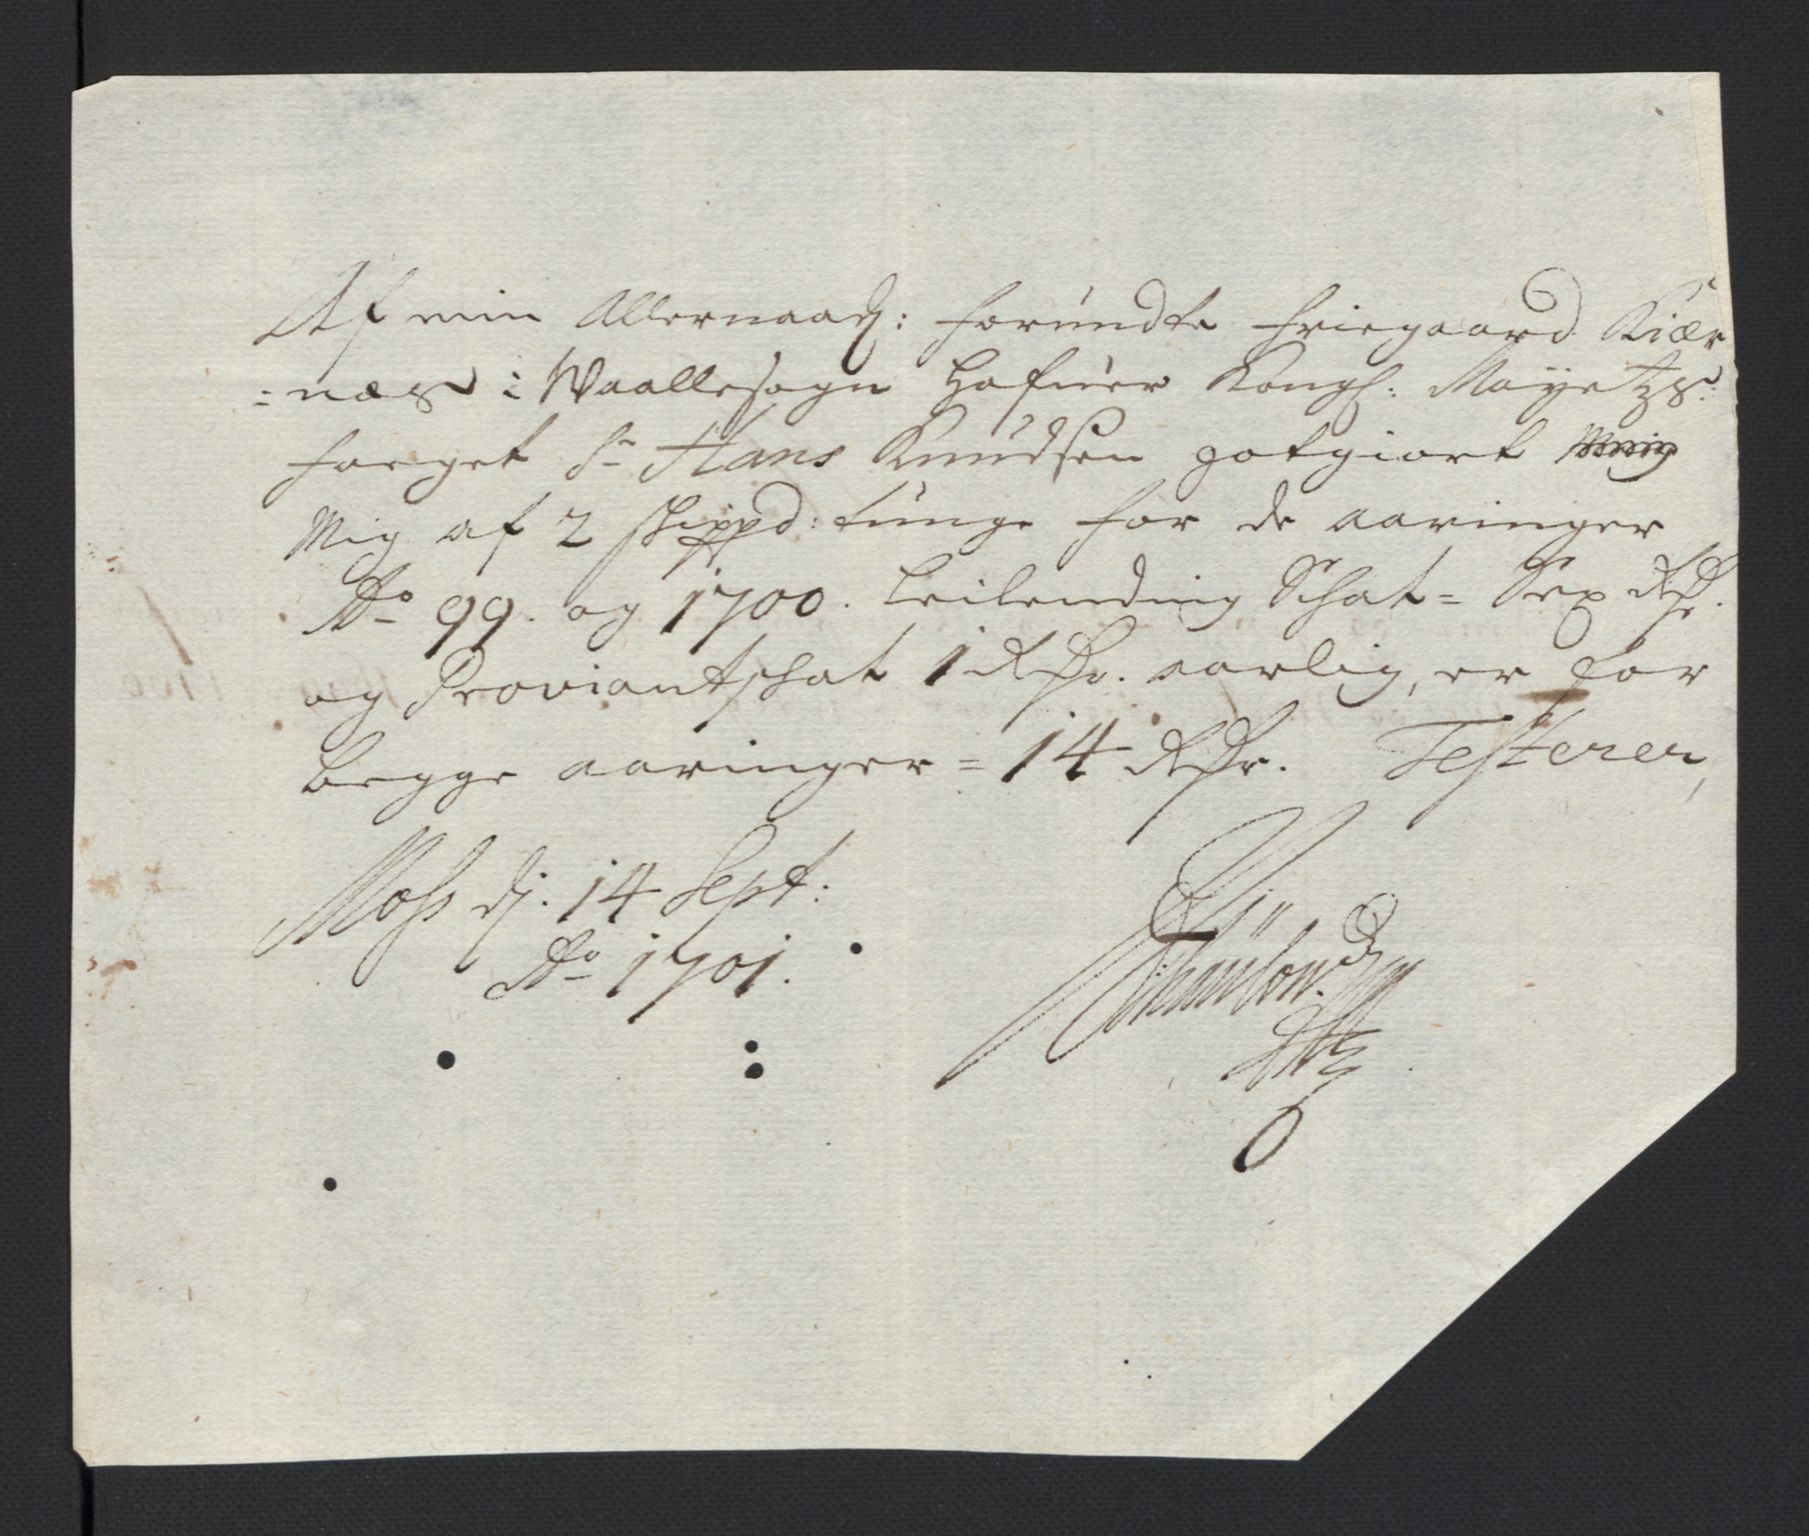 Af min Allernaad: forundte friegaard Kiær
=næs i Waallesogn hafuer Kongl: Mayetzs:
foeget Sr Hans Knudsen gotgiort
Mig af 2 skippd: tunge for de aaringer
Ao 99. og 1700. Leilending Schat= Sex Rdr.
og Proviantschat 1 Rdr. aarlig, er for
begge aaringer = 14 Rdr. Testerer,
Moss dj: 14 Sept:
Ao 1701.